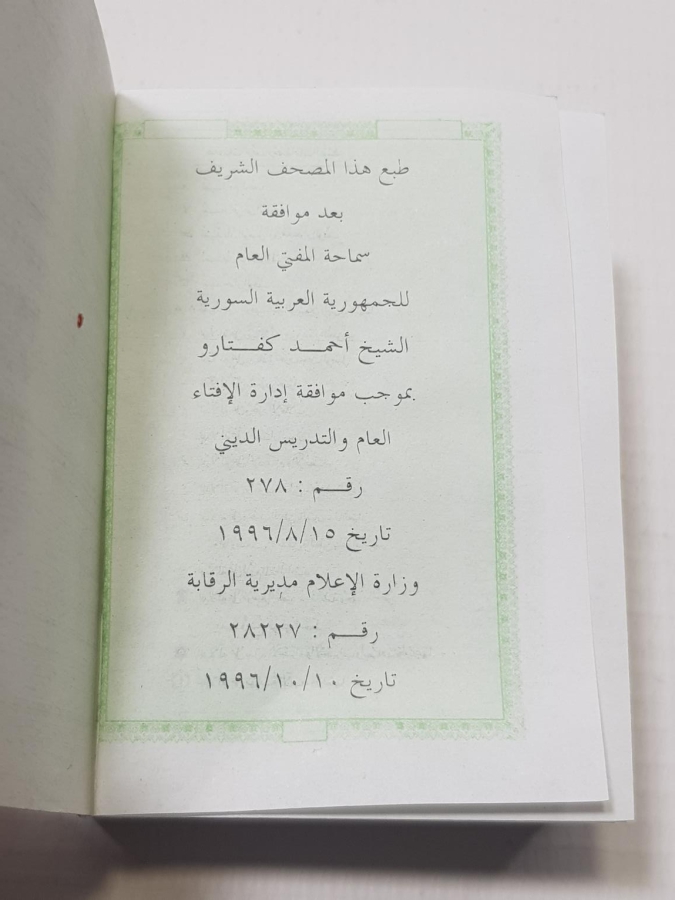 طبع هذا المصحف الشريف
بعد موافقة
سماحة المفتي العام
للجمهورية العربية السورية
الشيخ أحمـــد كفـــتارو
بموجب موافقة إدارة الإفتاء
العام والتدريس الديني
رقـــم : ٢٧٨
تاريخ ١٩٩٦/٨/١٥
وزارة الإعلام مديرية الرقابة
رقـــم : ٢٨٢٢٧
تاريخ ١٩٩٦/١٠/١٠